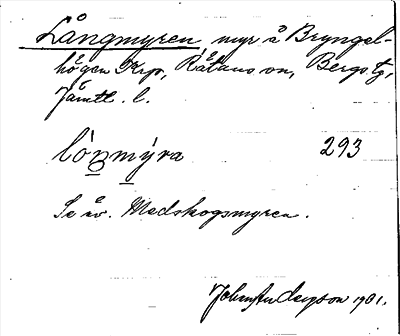 Långmyren, myr å Bryngel-
högen Krp, Rätans sn, Bergs tg,
Jämtl. l.
lòŋmýra 293
Se äv. Medskogsmyren.
John Anderson 1901.